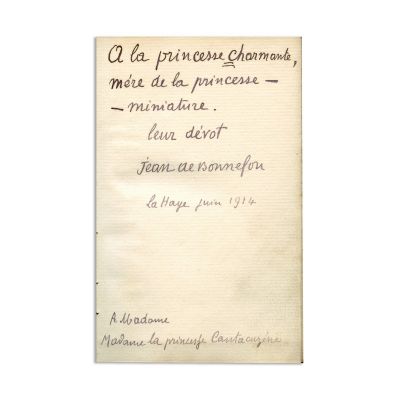 A la princesse charmante,
mére de la princesse —
— miniature.
leur dévot
jean de Bonnefon
la Haye juin 1914
A Madame
Madame la princesse Cantacuzène